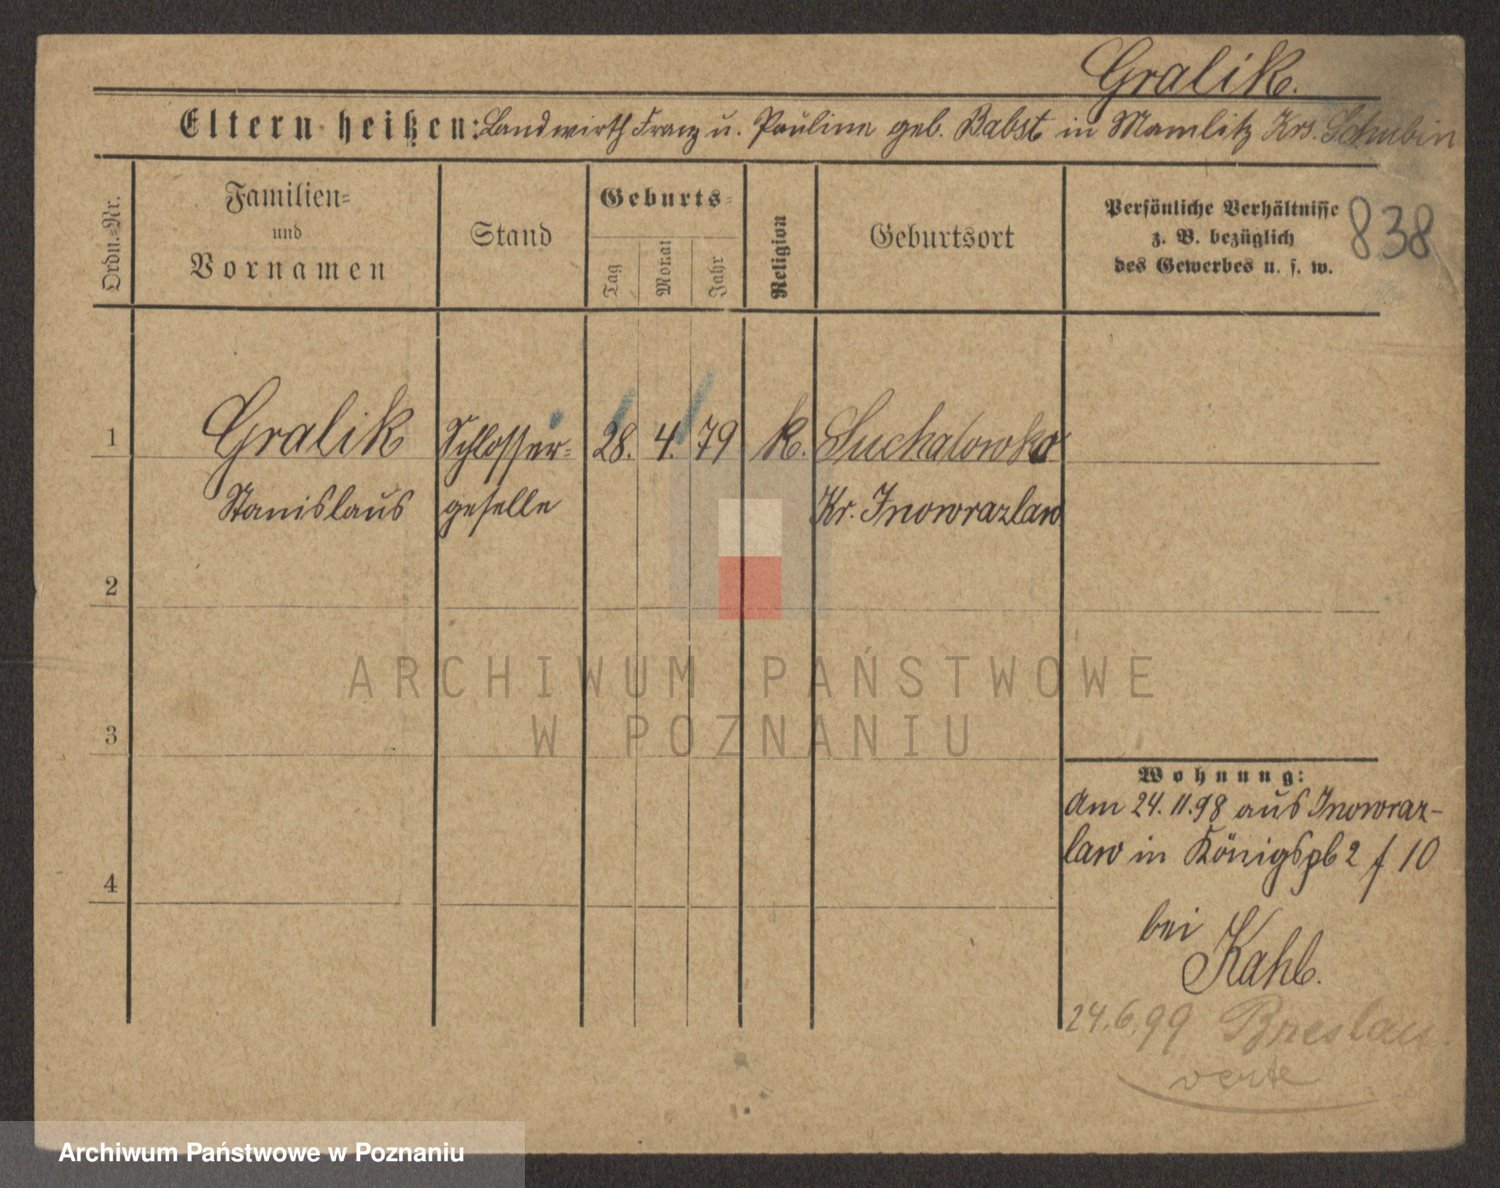 Gralik.
Eltern heißen: Landwirth Franz u. Pauline geb. Babst in Mamlitz Krs. Schubin
Ordn.=Nr.
Familien=
und
Vornamen
Stand
Geburts=
Tag
Monat
Jahr
Religion
Geburtsort
Persönliche Verhältnisse
z. B. bezüglich
des Gewerbes u. s. w.
838
1 Gralik Schlosser= 28. 4. 79 k. Suchatowko
Stanislaus geselle Kr. Inowrazlaw
2
3
4
ARCHIWUM PAŃSTWOWE
W POZNANIU
Wohnung:
Am 24.11.98 aus Inowraz-
law in Königspl 2 f 10
bei
Kahl.
24.6.99 Breslau
verte
Archiwum Państwowe w Poznaniu